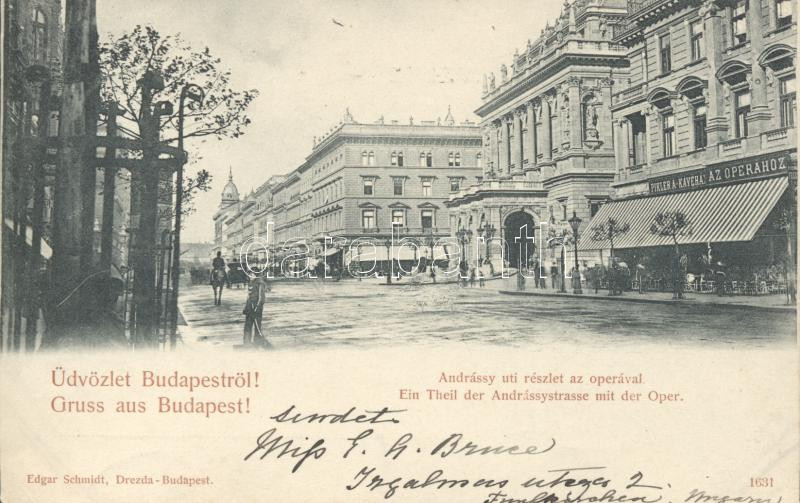 PIKLER A. KÁVÉHÁZ AZ OPERÁHOZ
darabanth.com
Üdvözlet Budapeströl!
Gruss aus Budapest!
Andrássy uti részlet az operával.
Ein Theil der Andrássystrasse mit der Oper.
sendet
Miss E. h. Bruce
Irgalmas utcza 2.
Funfkirchen, Ungarn
Edgar Schmidt, Drezda-Budapest.
1631